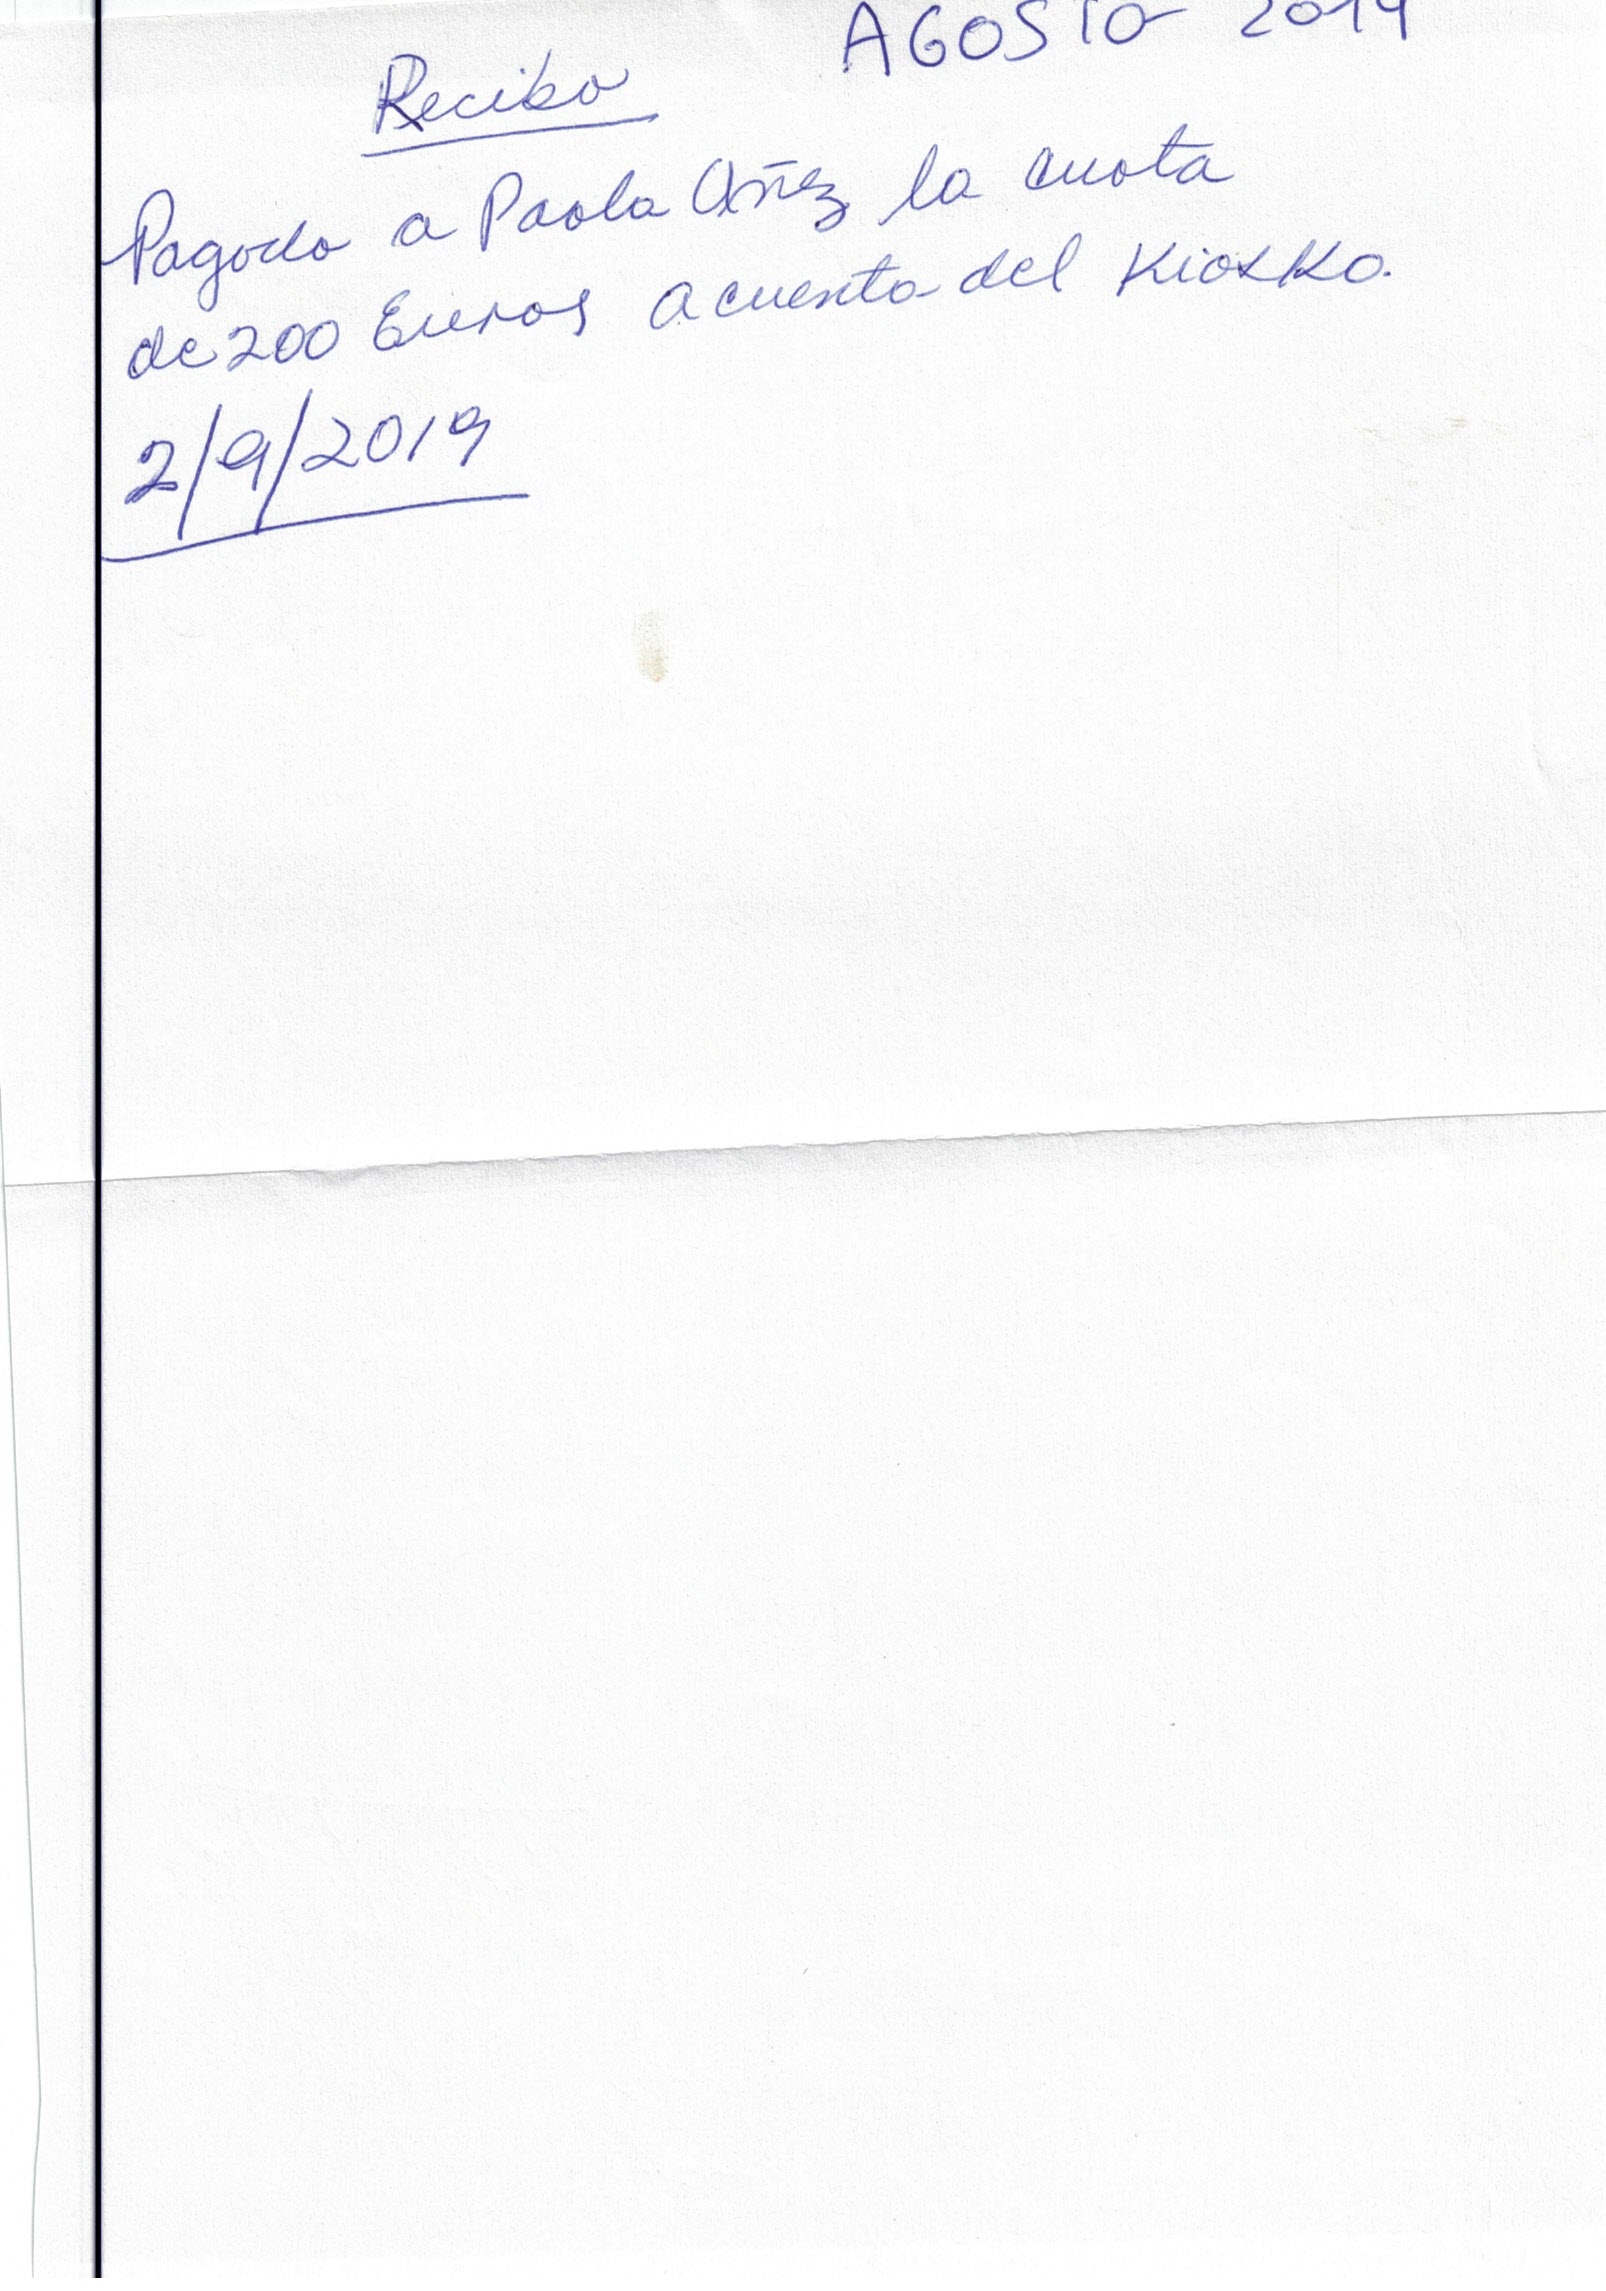 AGOSTO 2019
Recibo
Pagado a Paola Añez la cuota
de 200 Euros a cuenta del Kiosko.
2/9/2019